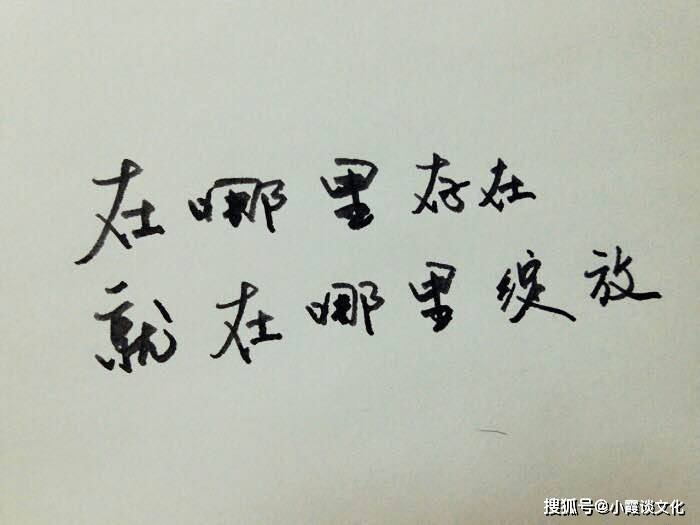 在哪里存在
就在哪里绽放
搜狐号@小霞谈文化